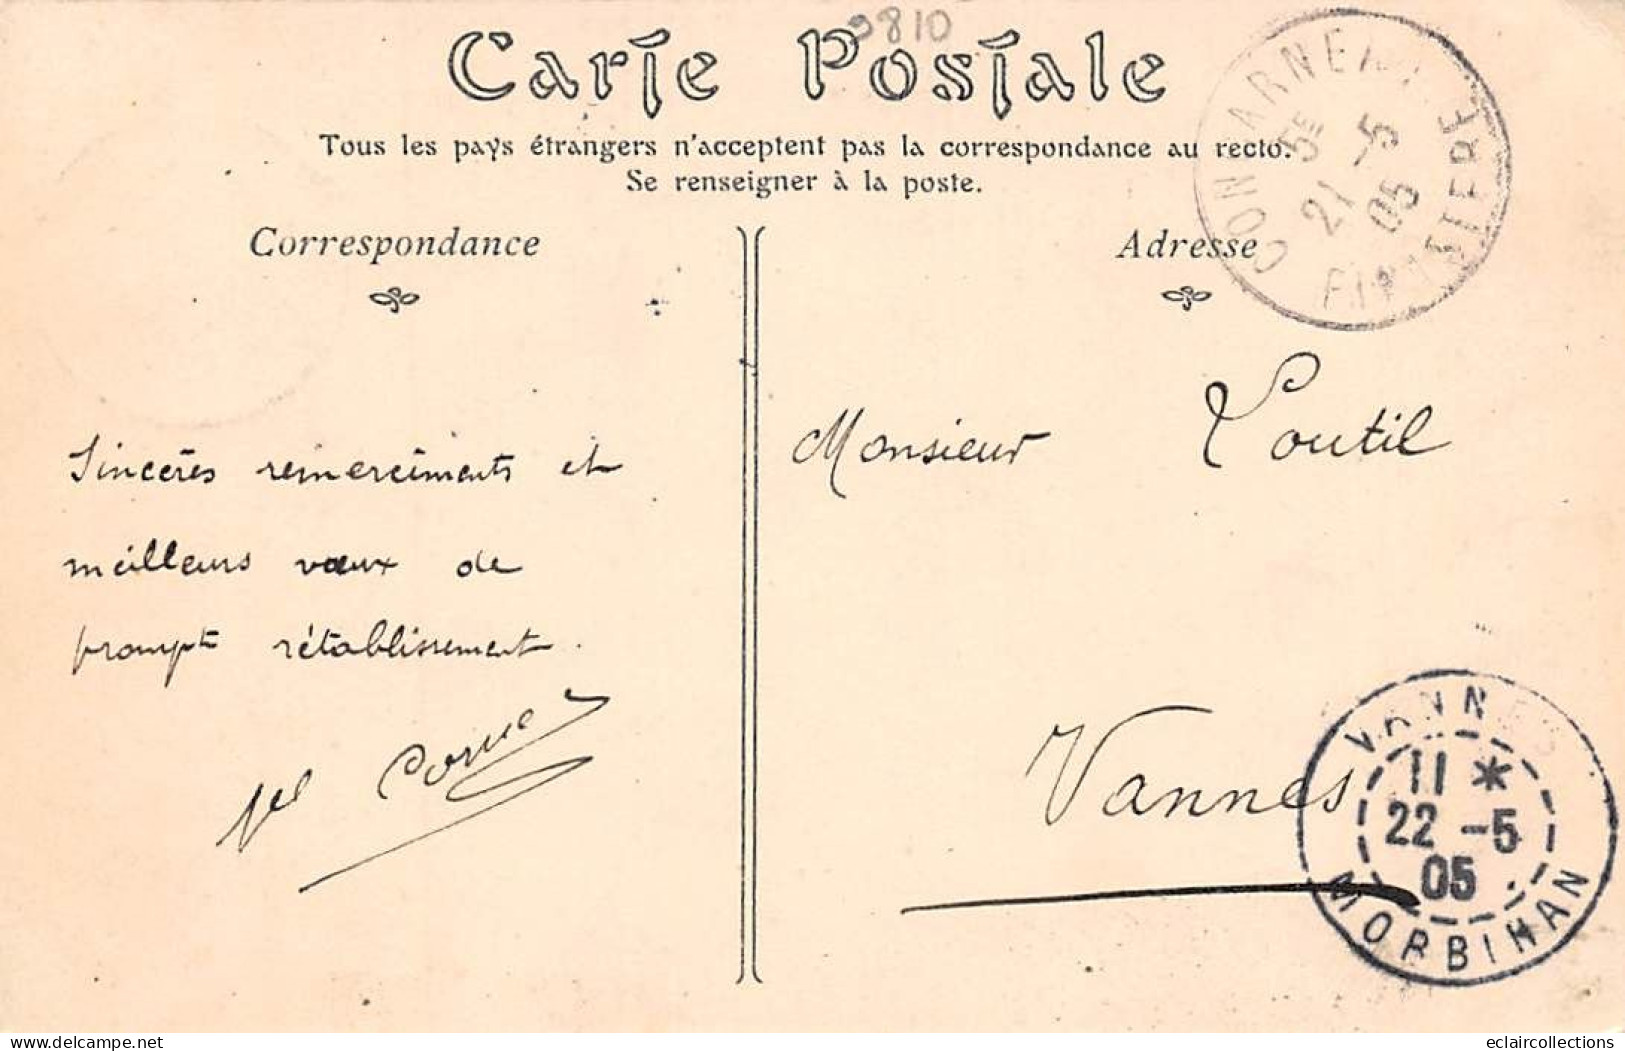 9810
Carte Postale
Tous les pays étrangers n'acceptent pas la correspondance au recto.
Se renseigner à la poste.
Correspondance
Adresse
CONCARNEAU
5E
21 -5
05
FINISTERE
Sincères remerciments et
meilleurs vœux de
prompt rétablissement.
Monsieur Loutil
Vannes
VANNES
11 *
22 -5
05
MORBIHAN
delcampe.net
eclaircollections